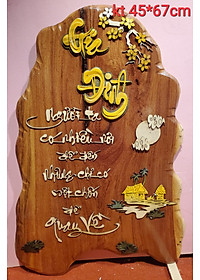 kt 45*67cm
Gia
Đình
Người ta
có nhiều nơi
để đến
nhưng chỉ có
một chốn
để
quay về